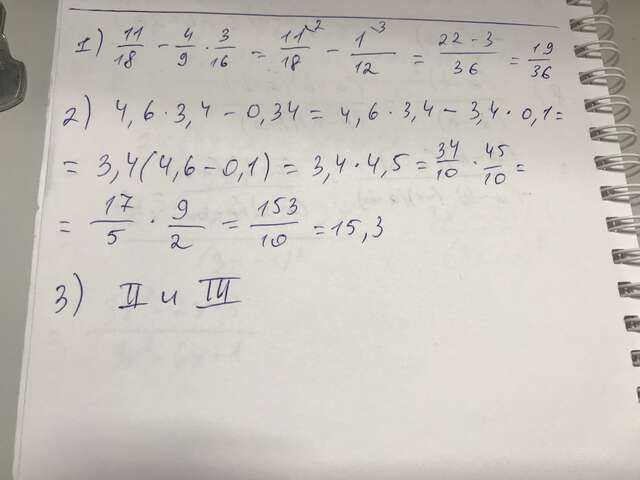 1) 11/18 - 4/9 · 3/16 = 11²/18 - 1³/12 = 22-3/36 = 19/36
2) 4,6 · 3,4 - 0,34 = 4,6 · 3,4 - 3,4 · 0,1 =
= 3,4 (4,6 - 0,1) = 3,4 · 4,5 = 34/10 · 45/10 =
= 17/5 · 9/2 = 153/10 = 15,3
3) II и III